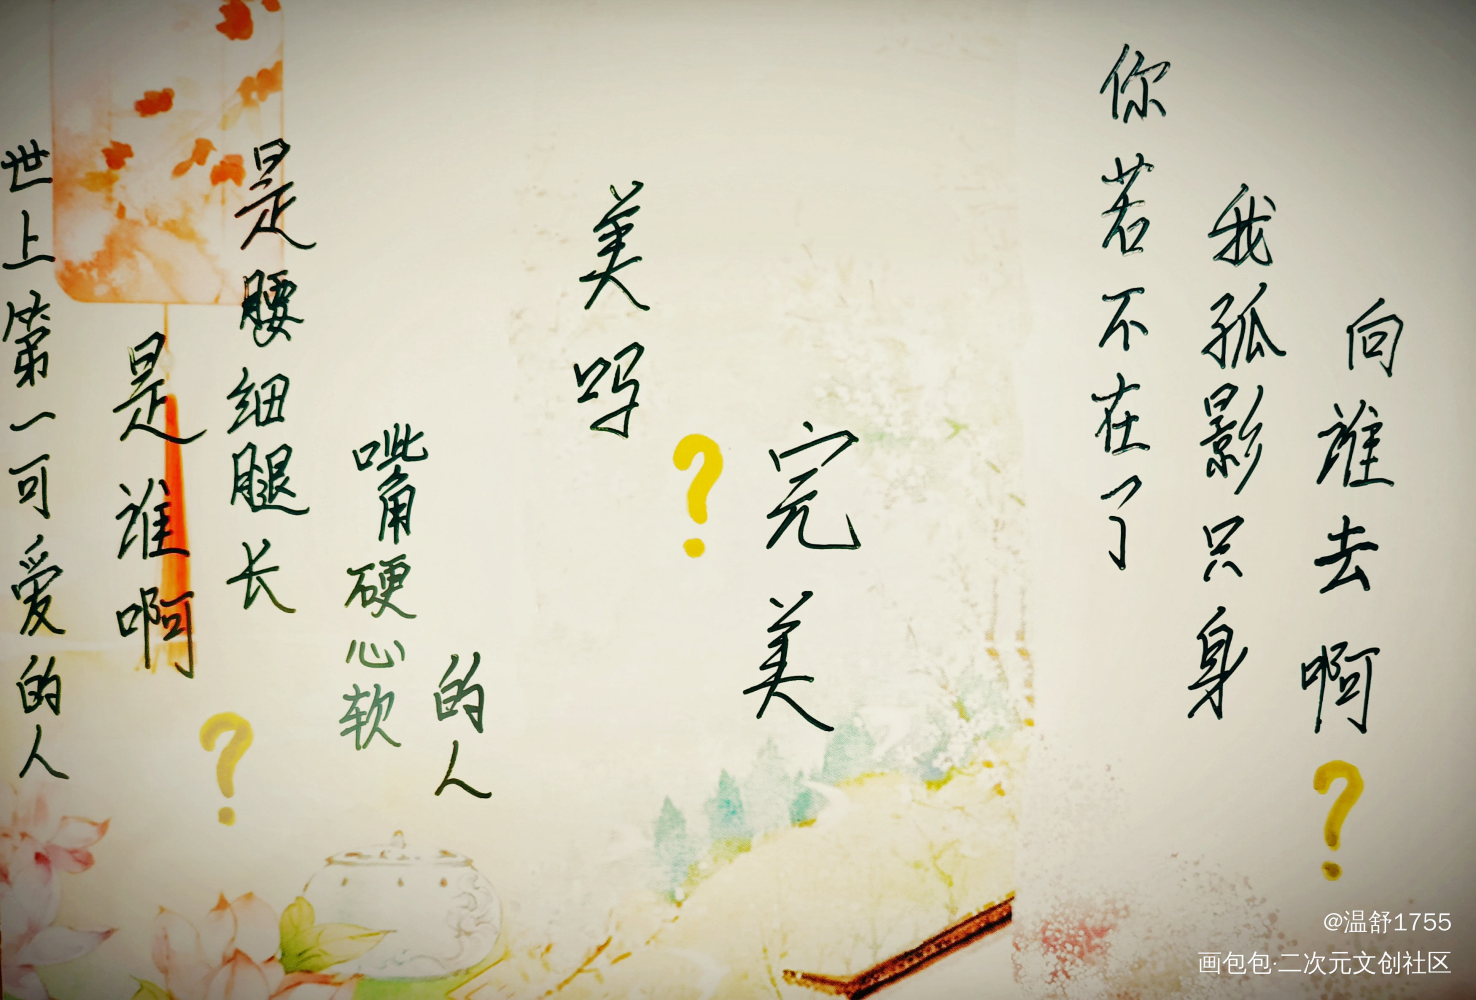 世上第一可爱的人
是谁啊?
是腰细腿长
嘴硬心软
的人
美吗?
完美
你若不在了
我孤影只身
向谁去啊?
@温舒1755
画包包·二次元文创社区